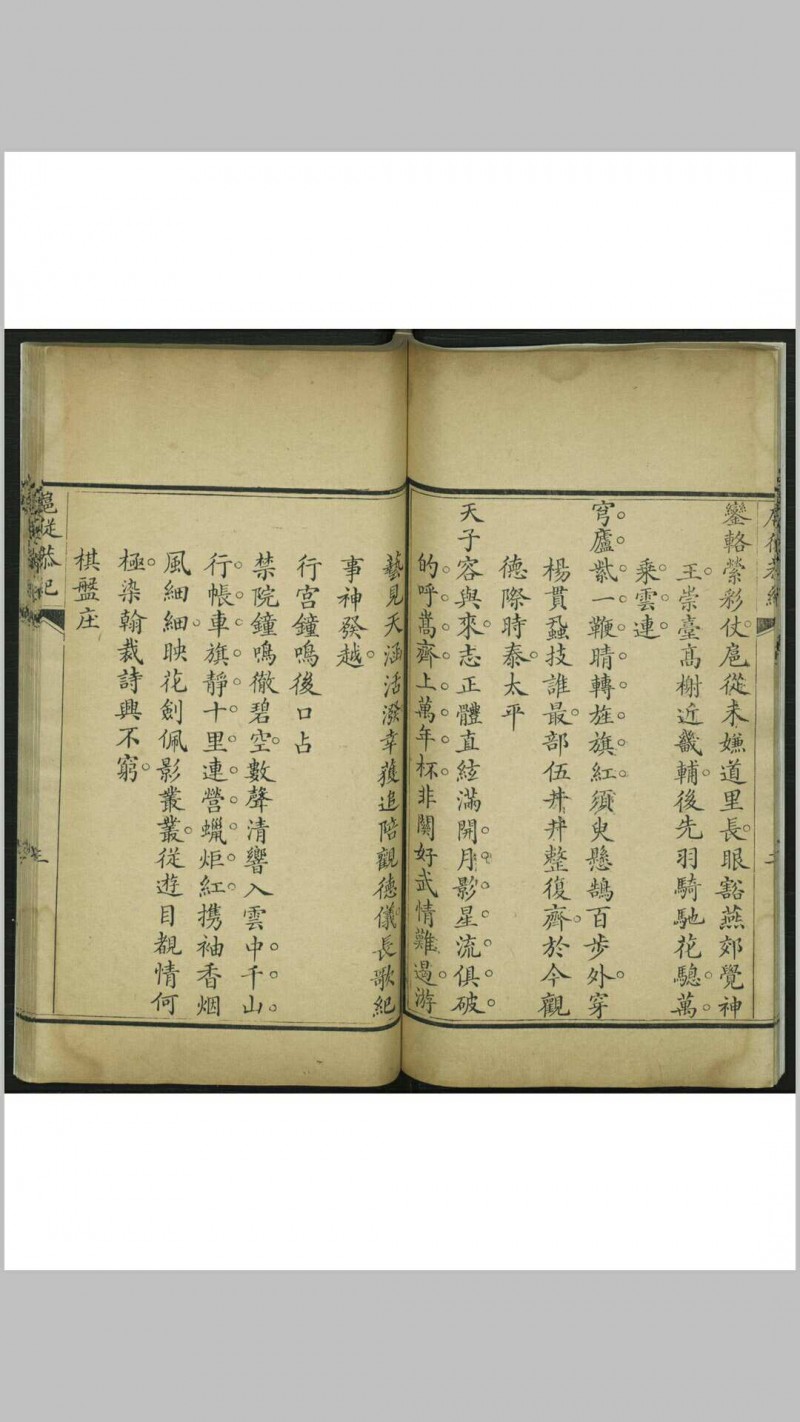 鑾輅縈彩仗扈從未嫌道里長眼豁燕郊覺神
王崇臺高榭近畿輔後先羽騎馳花驄萬
乘雲連
穹廬紮一鞭晴轉旌旗紅須臾懸鵠百步外穿
楊貫蝨技誰最部伍井井整復齊於今觀
德際時泰太平
天子容與來志正體直絃滿開月影星流俱破
的呼嵩齊上萬年杯非關好武情難遏游
藝見天涵活潑幸獲追陪觀德儀長歌紀
事神發越
行宮鐘鳴後口占
禁院鐘鳴徹碧空數聲清響入雲中千山
行帳車旗靜十里連營蠟炬紅携袖香烟
風細細映花劍佩影叢叢從遊目覩情何
極染翰裁詩興不窮
棋盤庄
扈從恭紀
三